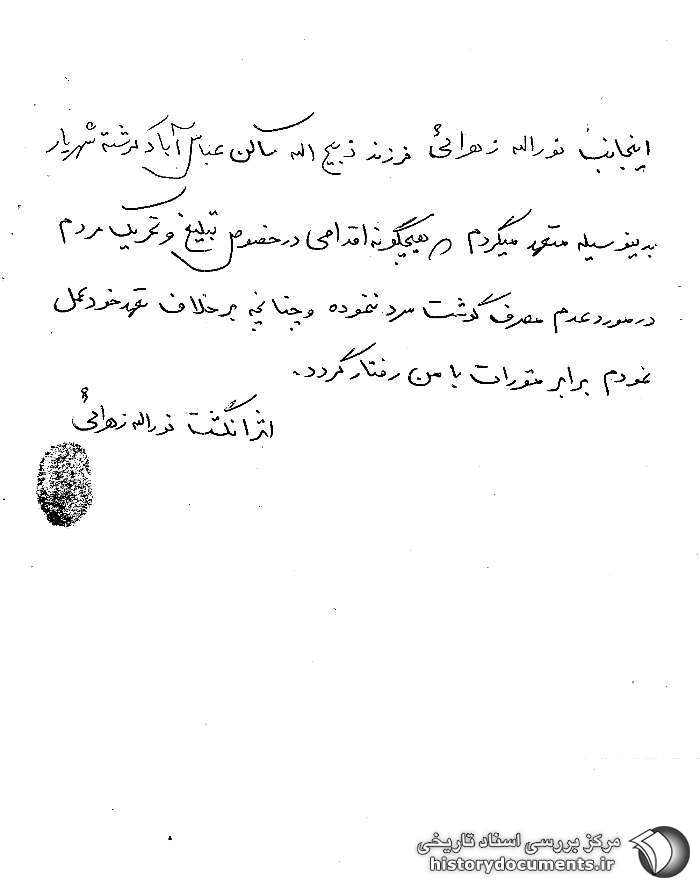 اینجانب نوراله زهرائی فرزند ذبیح اله ساکن عباس آباد شهریار
بدینوسیله متعهد میگردم هیچگونه اقدامی در خصوص تبلیغ و تحریک مردم
در مورد عدم مصرف گوشت سرد ننموده و چنانچه بر خلاف تعهد خود عمل
نمودم برابر مقررات با من رفتار گردد.
اثر انگشت نوراله زهرائی
مرکز بررسی اسناد تاریخی
historydocuments.ir